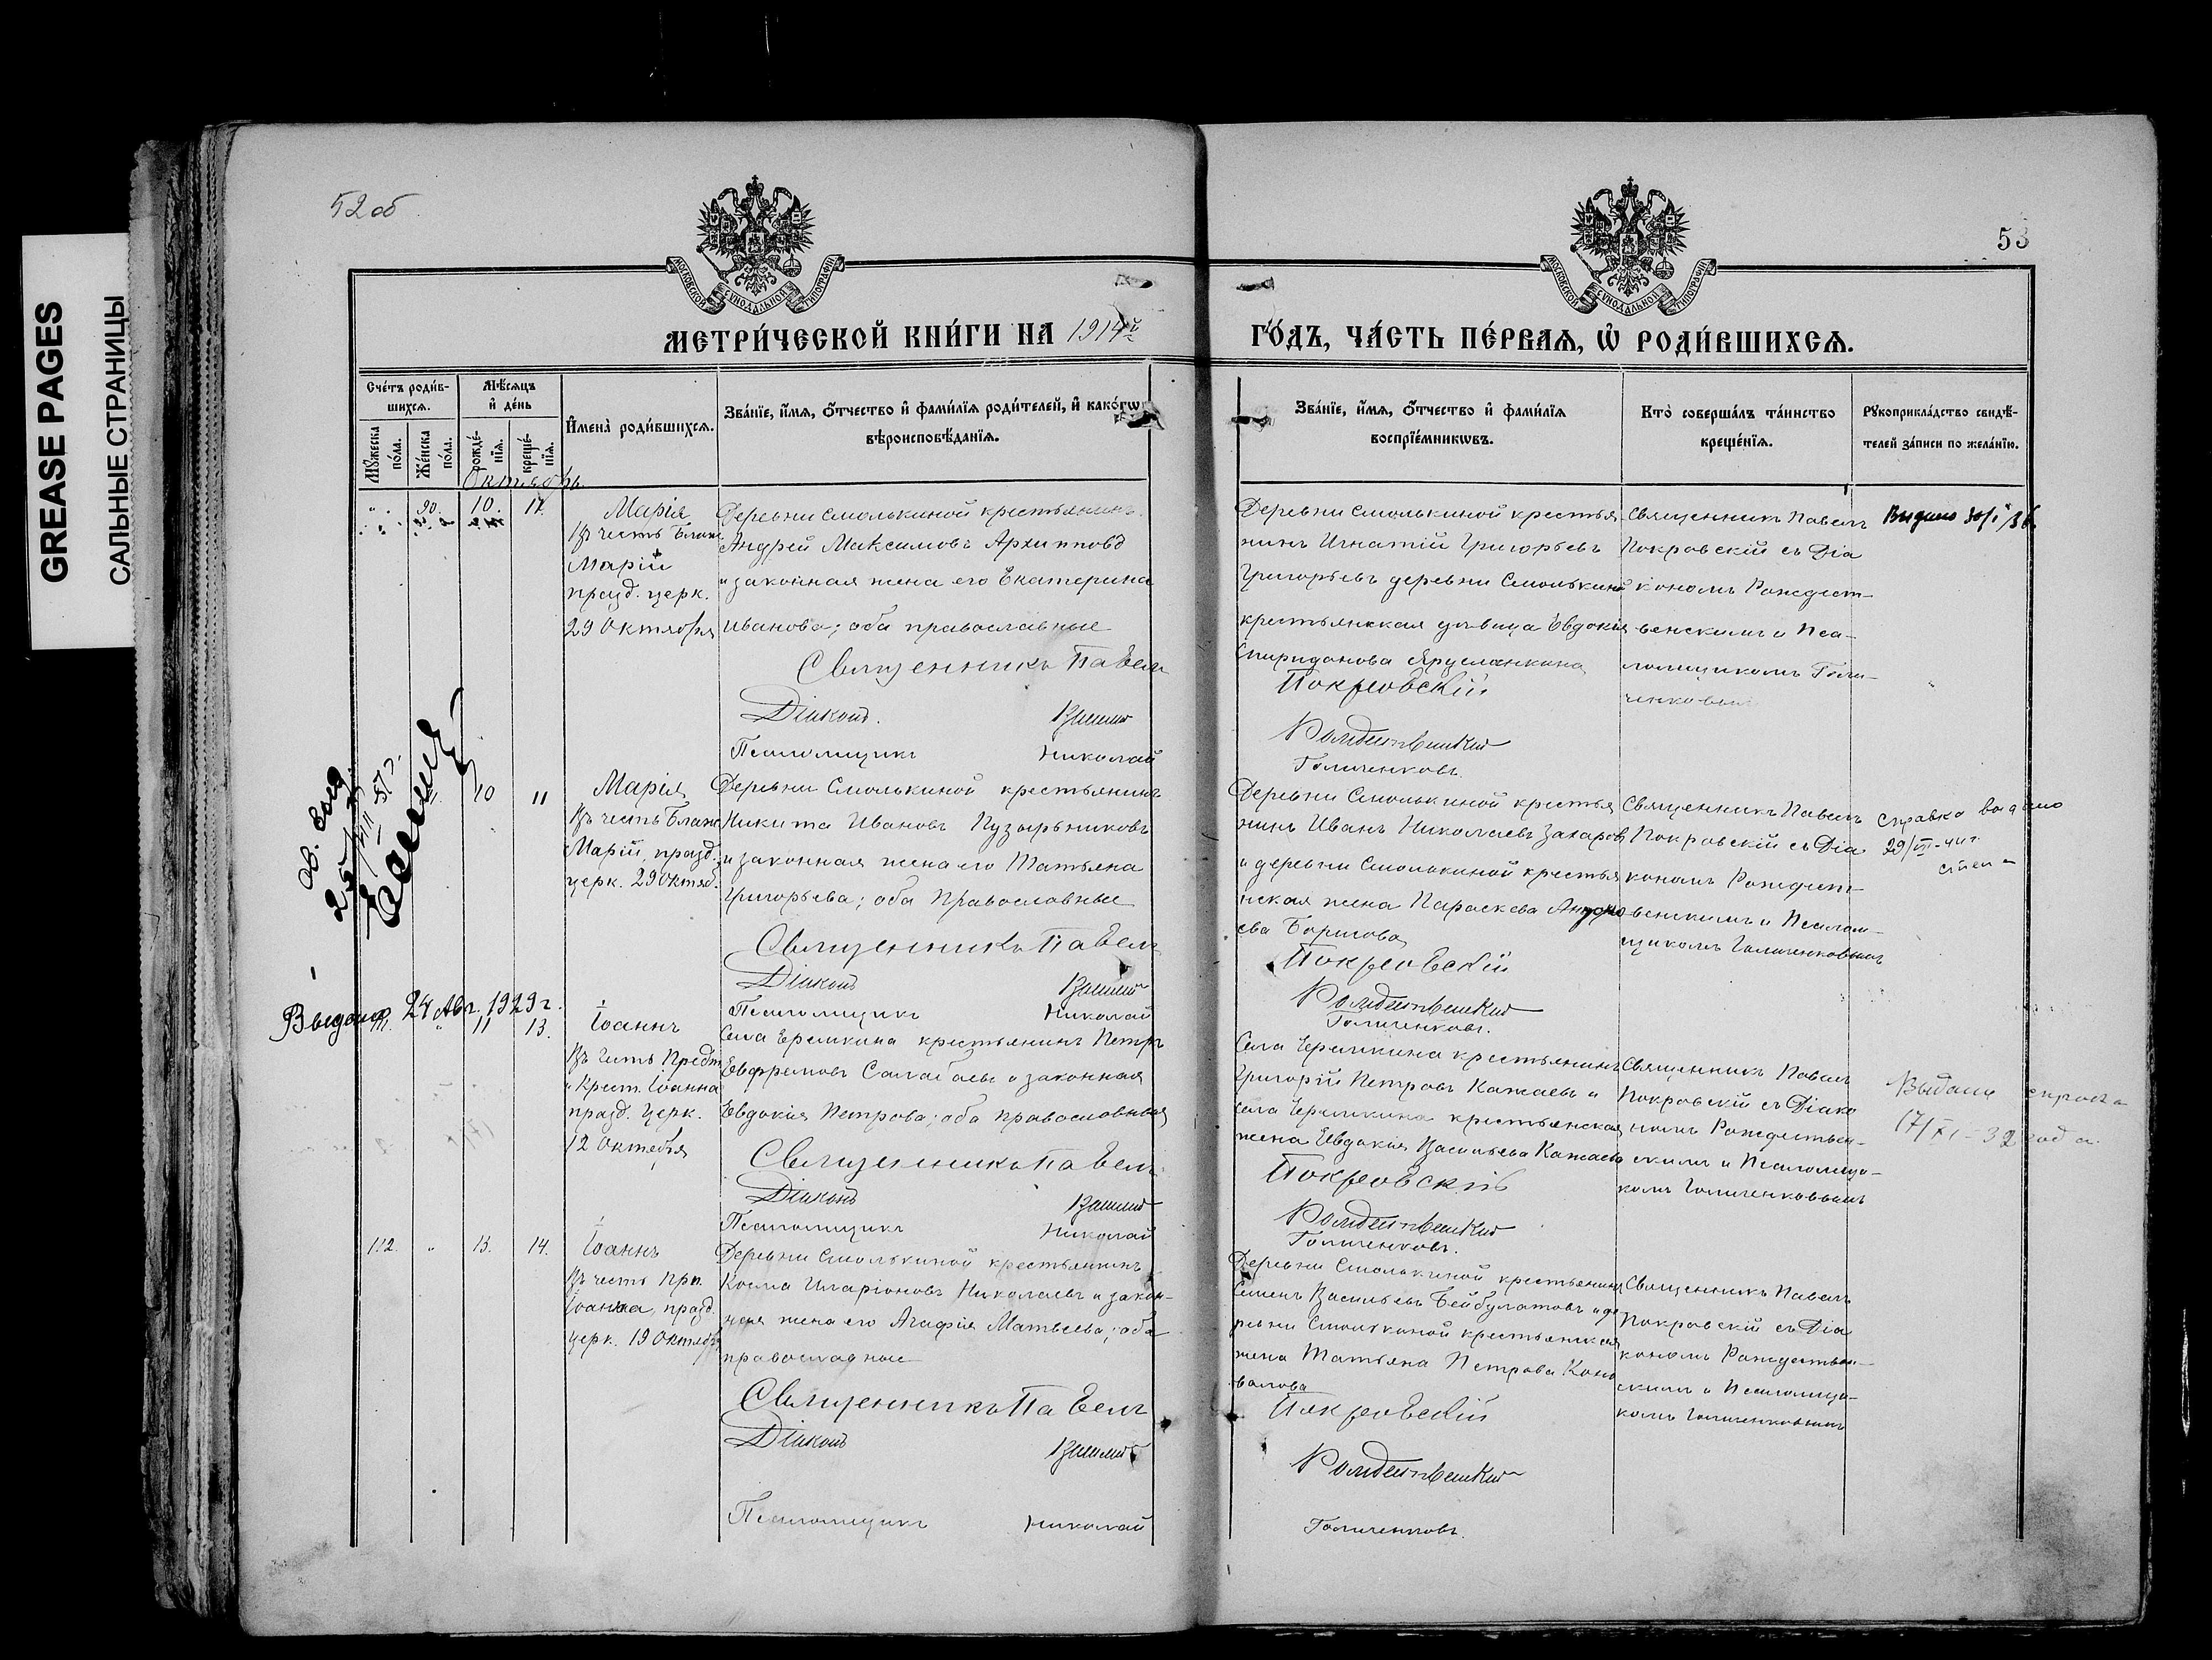 GREASE PAGES
САЛЬНЫЕ СТРАНИЦЫ
52 об
53
МОСКОВСКОЙ СУНОДАЛЬНОЙ ТИПОГРАФІИ
МОСКОВСКОЙ СУНОДАЛЬНОЙ ТИПОГРАФІИ
МЕТРИ́ЧЕСКОЙ КНИ́ГИ НА 1914й
ГО́ДЪ, ЧА́СТЬ ПЕ́РВАѦ, Ѡ҆ РОДИ́ВШИХСѦ.
Сче́тъ роди́в-
шихсѧ.
Мѣ́сѧцъ
и҆ де́нь
Мꙋ́жеска
по́ла.
Же́нска
по́ла.
рожде́-
нїѧ.
креще́-
нїѧ.
И҆мена̀ роди́вшихсѧ.
Зва́нїе, и҆́мѧ, ѻ҆́тчество и҆ фами́лїѧ роди́телей, и҆ како́гѡ
вѣроисповѣ́данїѧ.
Зва́нїе, и҆́мѧ, ѻ҆́тчество и҆ фами́лїѧ
воспрїе́мникѡвъ.
Кто̀ соверша́лъ та́инство
креще́нїѧ.
Рꙋкоприкла́дство свидѣ́-
телей за́писи по жела́нїю.
Октябрь
90. 10. 11.
Марія
Въ честь Блаж.
Маріи
празд. церк.
29 Октября
Деревни Смолькиной крестьянинъ
Андрей Максимовъ Архиповъ
и законная жена его Екатерина
Иванова; оба православные
Священникъ Павелъ
Діаконъ
Псаломщикъ Николай
Деревни Смолькиной крестья
нинъ Игнатій Григорьевъ
Григорьевъ деревни Смолькиной
крестьянская дѣвица Евдокія
Спиридонова
Покровскій
Рождественскій
Голиченковъ.
Священникъ Павелъ
Покровскій съ Діа
кономъ Рождест-
венскимъ и Пса-
ломщикомъ Голи-
ченковымъ
Выдано 30/I 36
25/VII
10 11
Марія
Въ честь Блаж.
Маріи, празд.
церк. 29 Октяб.
Деревни Смолькиной крестьянинъ
Никита Ивановъ Пузырьниковъ
и законная жена его Татьяна
Григорьева; оба православные
Священникъ Павелъ
Діаконъ
Псаломщикъ Николай
Деревни Смолькиной крестья
нинъ Иванъ Николаевъ Захаровъ
и деревни Смолькиной крестья
нская жена Параскева
ева Борисова
Покровскій
Рождественскій
Голиченковъ.
Священникъ Павелъ
Покровскій съ Діа
кономъ Рождест-
венскимъ и Псалом-
щикомъ Голиченковымъ
справка выдано
29/VII
Выдана 24 Авг. 1929 г.
11 13.
Іоаннъ
Въ честь Предт.
и Крест. Іоанна
празд. церк.
12 Октября
Села Еремкина крестьянинъ Петръ
Евфремовъ Салабаевъ и законная
Евдокія Петрова; оба православные
Священникъ Павелъ
Діаконъ
Псаломщикъ Николай
Села Еремкина крестьянинъ
Григорій Петровъ Кажаевъ и
села Еремкина крестьянская
жена Евдокія Васильева Кажаева
Покровскій
Рождественскій
Голиченковъ.
Священникъ Павелъ
Покровскій съ Діако
номъ Рождествен-
скимъ и Псаломщи-
комъ Голиченковымъ
Выдана справка
17/XI-32 года.
112. " 13. 14.
Іоаннъ
Въ честь Прп.
Іоанна, празд.
церк. 19 Октября
Деревни Смолькиной крестьянинъ
Косма Иларіоновъ Николаевъ и закон-
ная жена его Агафія Матвеева; оба
православные
Священникъ Павелъ
Діаконъ
Псаломщикъ Николай
Деревни Смолькиной крестьянинъ
Семенъ Васильевъ Бейбулатовъ и де-
ревни Смолькиной крестьянская
жена Татьяна Петрова Коно
валова
Покровскій
Рождественскій
Голиченковъ.
Священникъ Павелъ
Покровскій съ Діа
кономъ Рождествен-
скимъ и Псаломщи-
комъ Голиченковымъ